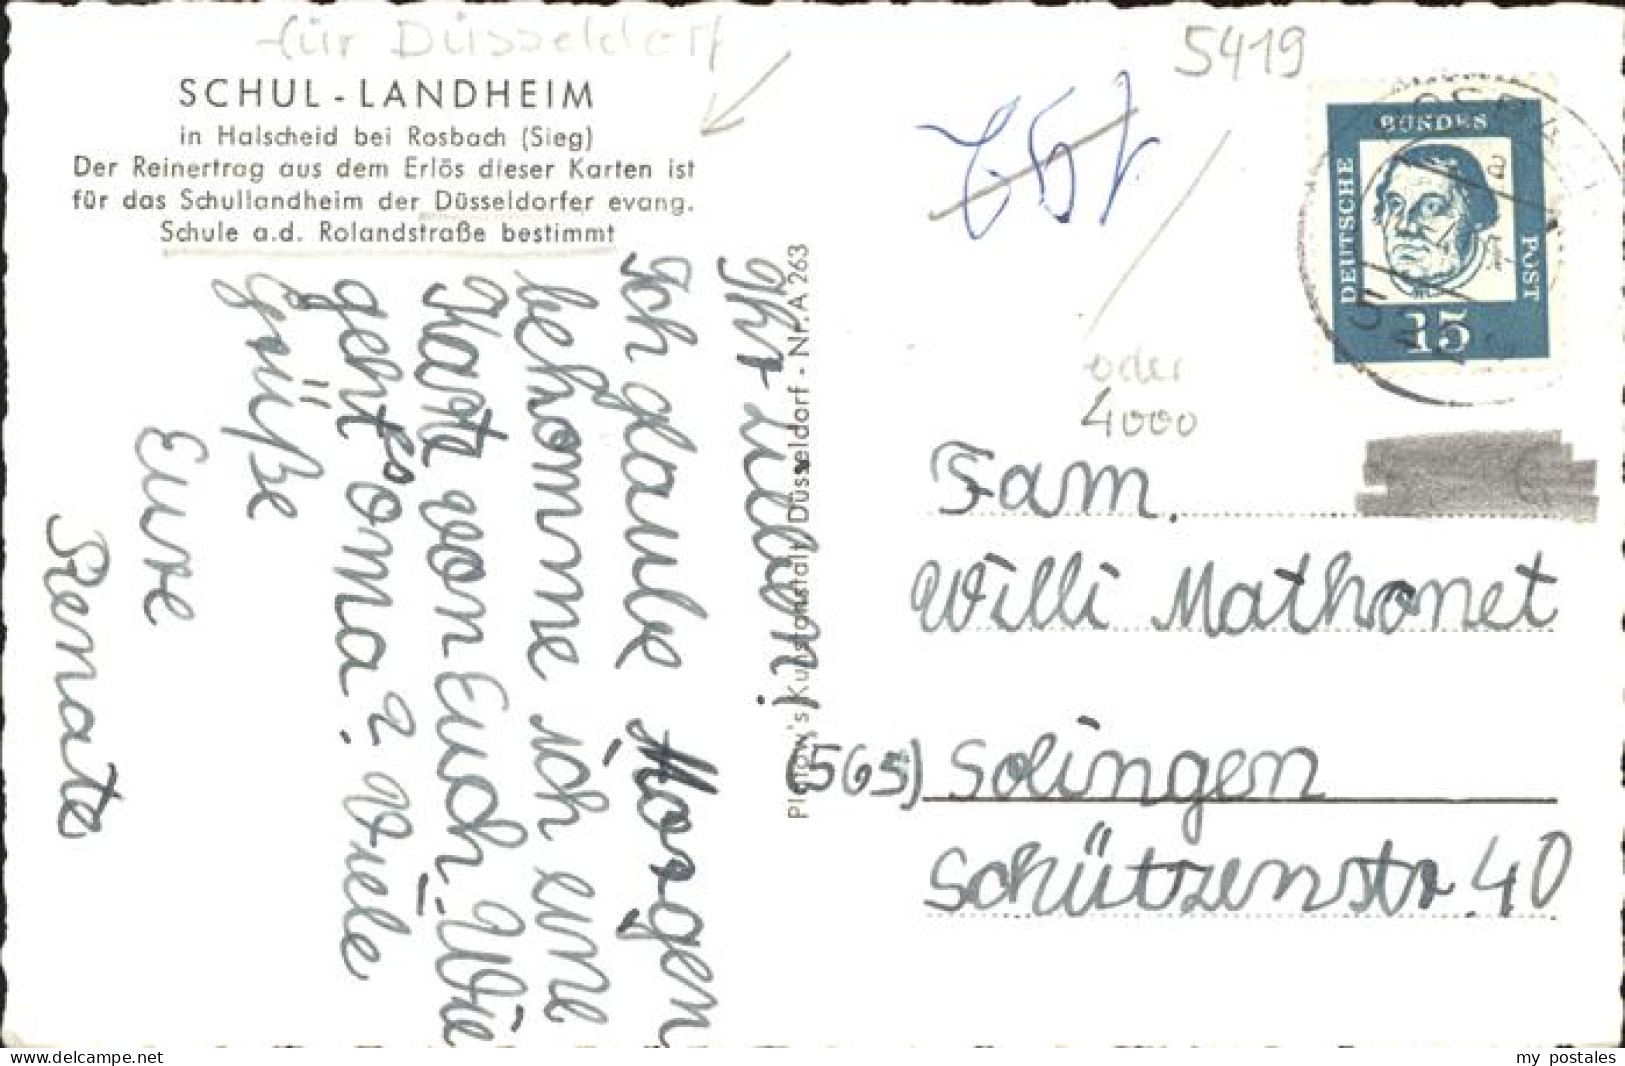 für Düsseldorf
SCHUL-LANDHEIM
in Halscheid bei Rosbach (Sieg)
Der Reinertrag aus dem Erlös dieser Karten ist
für das Schullandheim der Düsseldorfer evang.
Schule a.d. Rolandstraße bestimmt
Ihr Lieben!
Ich glaube Morgen
bekomme ich eine
Karte von Euch. Wie
geht es Oma? Viele
Grüße
Eure
Renate
Platow's Kunstanstalt Düsseldorf - Nr. A 263
5419
BUNDES
DEUTSCHE
POST
15
oder
4000
Fam.
Willi Mathonet
(565) Solingen
Schützenstr. 40
www.delcampe.net
my postales